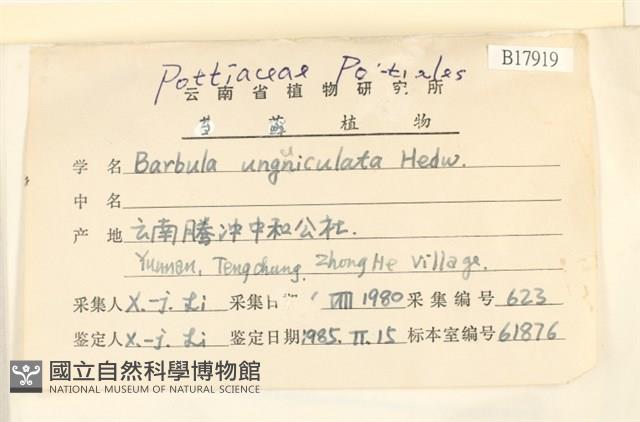 B17919
Pottiaceae Pottiales
云南省植物研究所
苔藓植物
学名 Barbula unguiculata Hedw.
中名
产地 云南腾冲中和公社.
Yunnan, Tengchung, ZhongHe Village.
采集人 X.-j. Li 采集日期 VIII 1980 采集编号 623
鉴定人 X.-j. Li 鉴定日期 1985. II. 15 标本室编号 61876
國立自然科學博物館
NATIONAL MUSEUM OF NATURAL SCIENCE